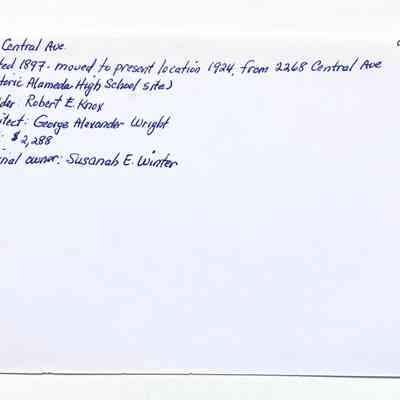 Central Ave.
ted 1897- moved to present location 1924, from 2268 Central Ave
toric Alameda High School site)
der: Robert E. Knox
itect: George Alexander Wright
: $2,288
inal owner: Susanah E. Winter